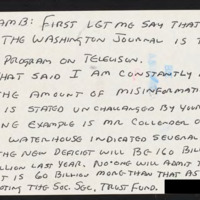 AMB: FIRST LET ME SAY THAT
THE WASHINGTON JOURNAL IS T
PROGRAM ON TELEVISION.
HAT SAID I AM CONSTANTLY
HE AMOUNT OF MISINFORMATI
IS STATED UNCHALLENGED BY YOUR
NE EXAMPLE IS MR COLLENDER O
WATERHOUSE INDICATED SEVERAL
HE NEW DEFICIT WILL BE 160 BILL
ILLION LAST YEAR. NO ONE WILL ADMIT T
T IS 60 BILLION MORE THAN THAT AS
OTING THE SOC. SEC. TRUST FUND.